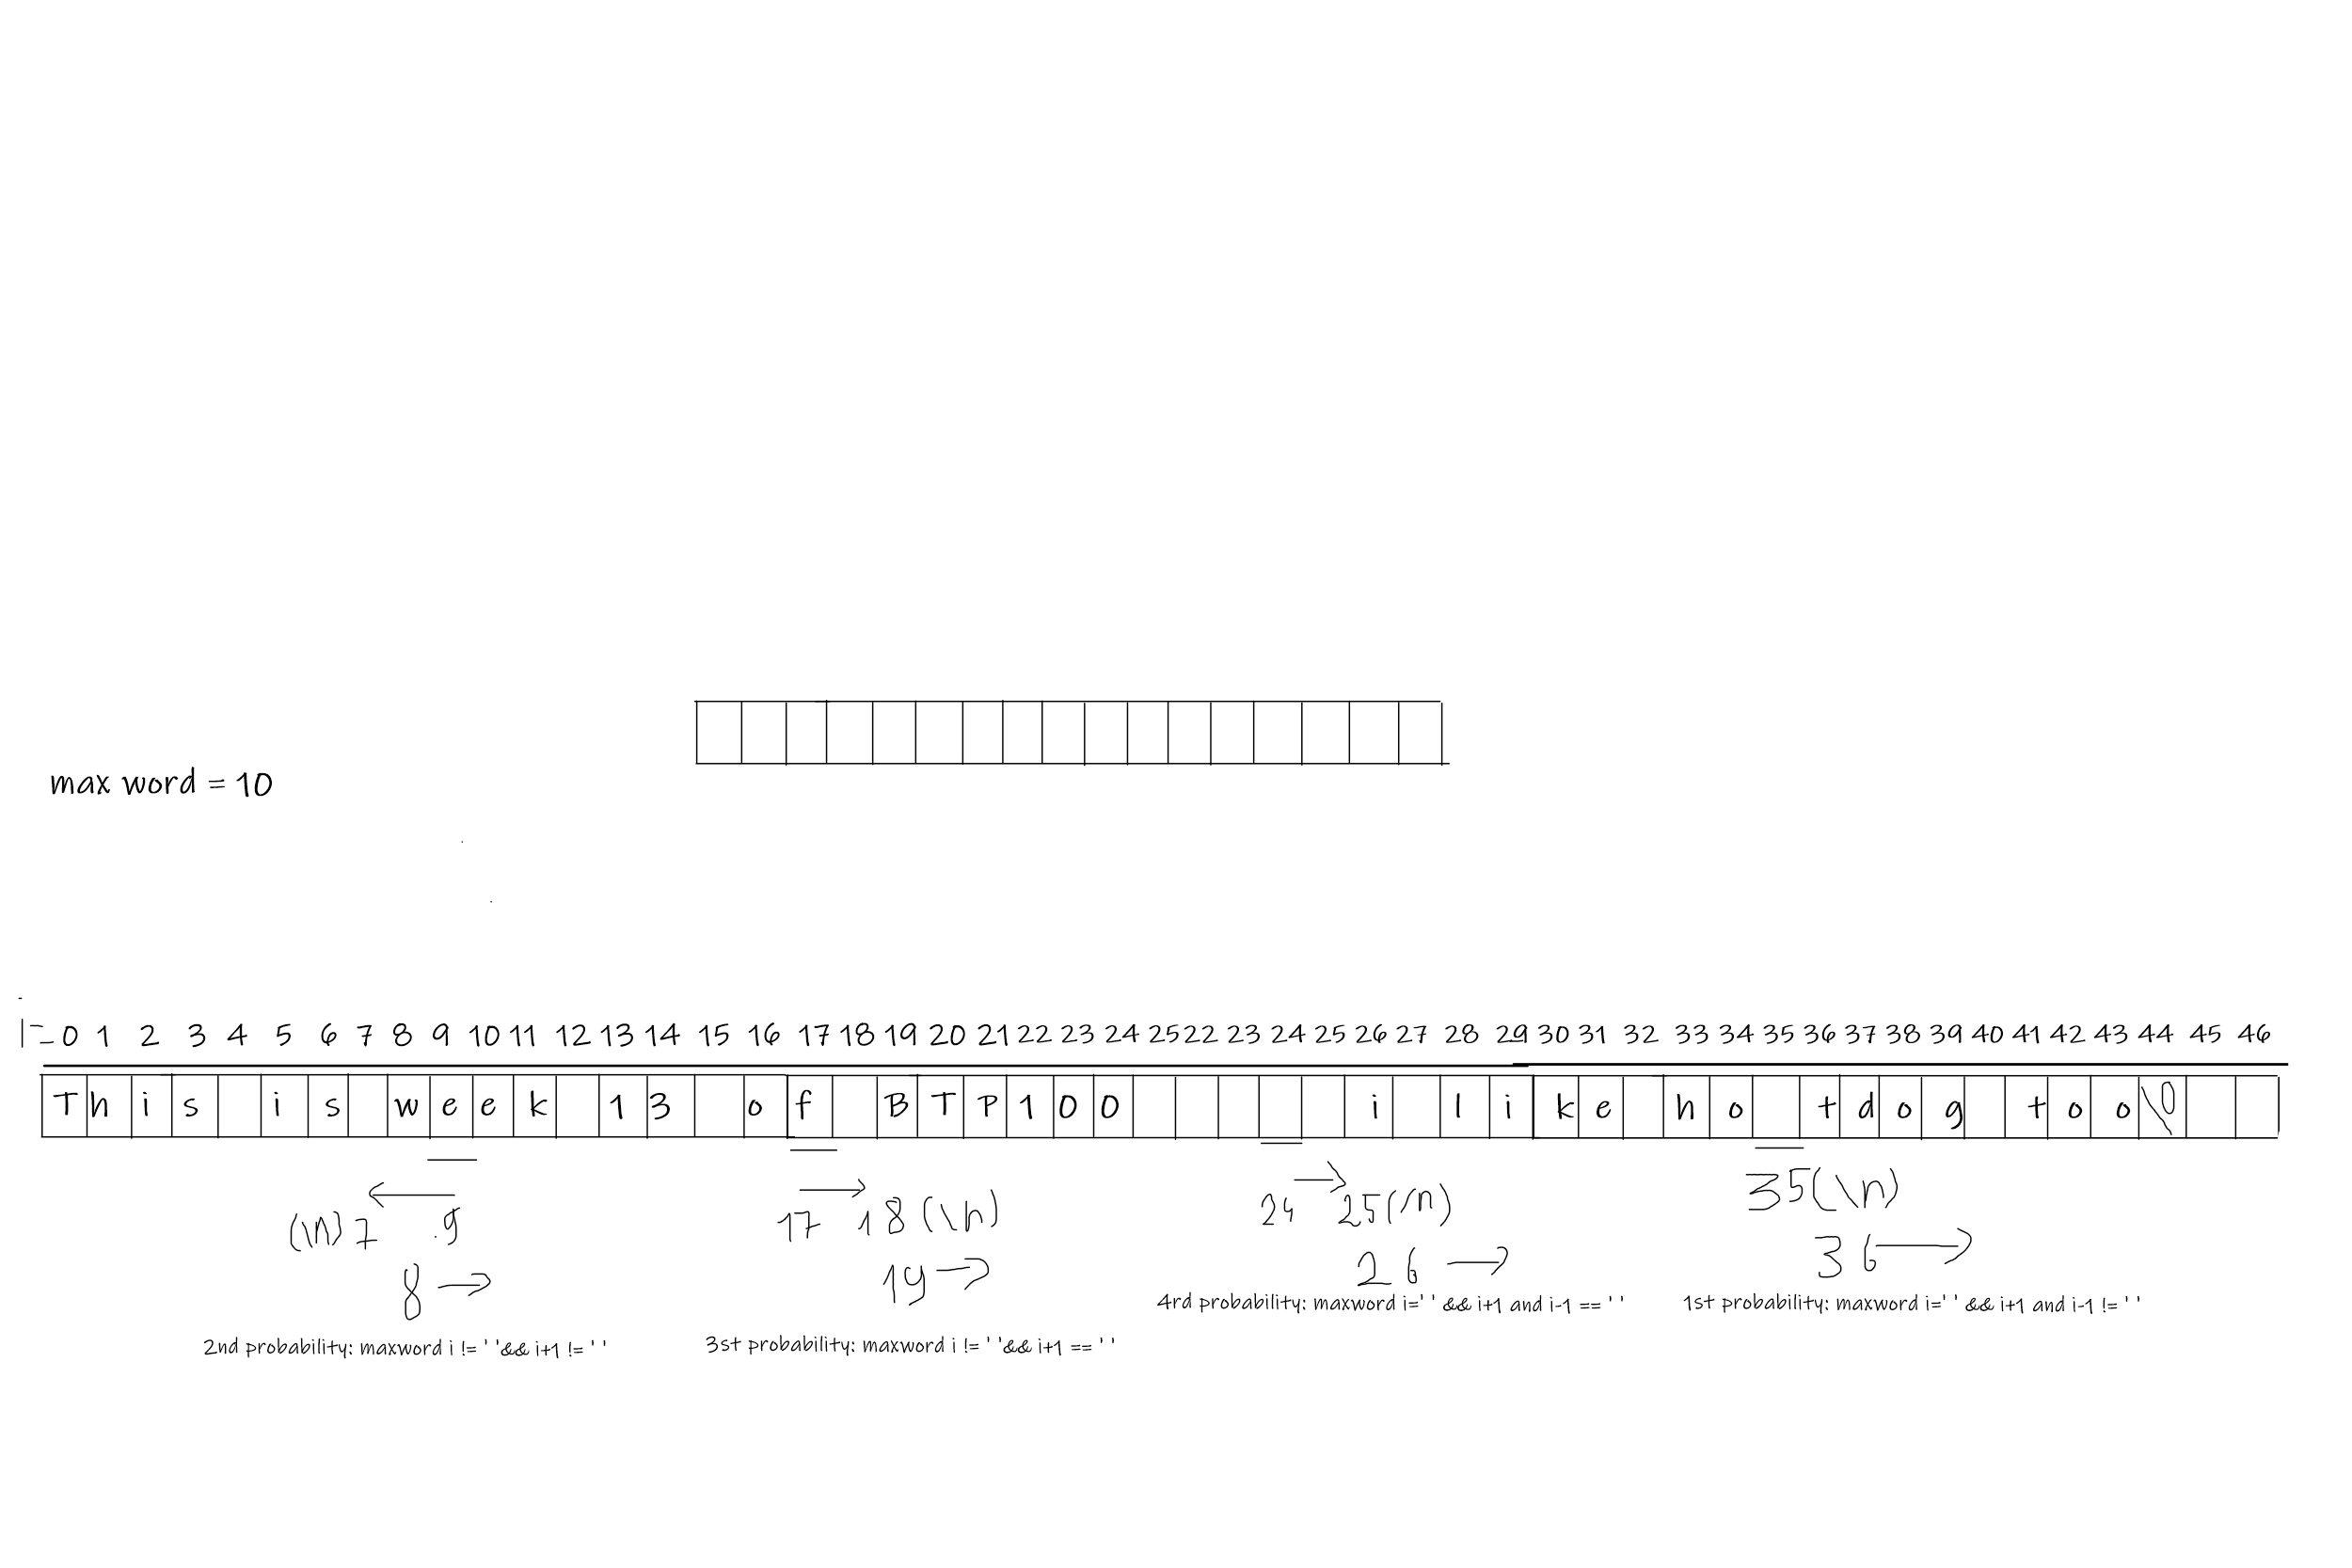 max word = 10
i= 0 1 2 3 4 5 6 7 8 9 10 11 12 13 14 15 16 17 18 19 20 21 22 23 24 25 22 23 24 25 26 27 28 29 30 31 32 33 34 35 36 37 38 39 40 41 42 43 44 45 46
T h i s i s w e e k 1 3 o f B T P 1 0 0 i l i k e h o t d o g t o o \0
(\n) 7 9
8
2nd probability: maxword i != ' '&& i+1 != ' '
17 18 (\n)
19
3st probability: maxword i != ' '&& i+1 == ' '
24 25 (/n)
26
4rd probability: maxword i=' ' && i+1 and i-1 == ' '
35 (\n)
36
1st probability: maxword i=' ' && i+1 and i-1 != ' '